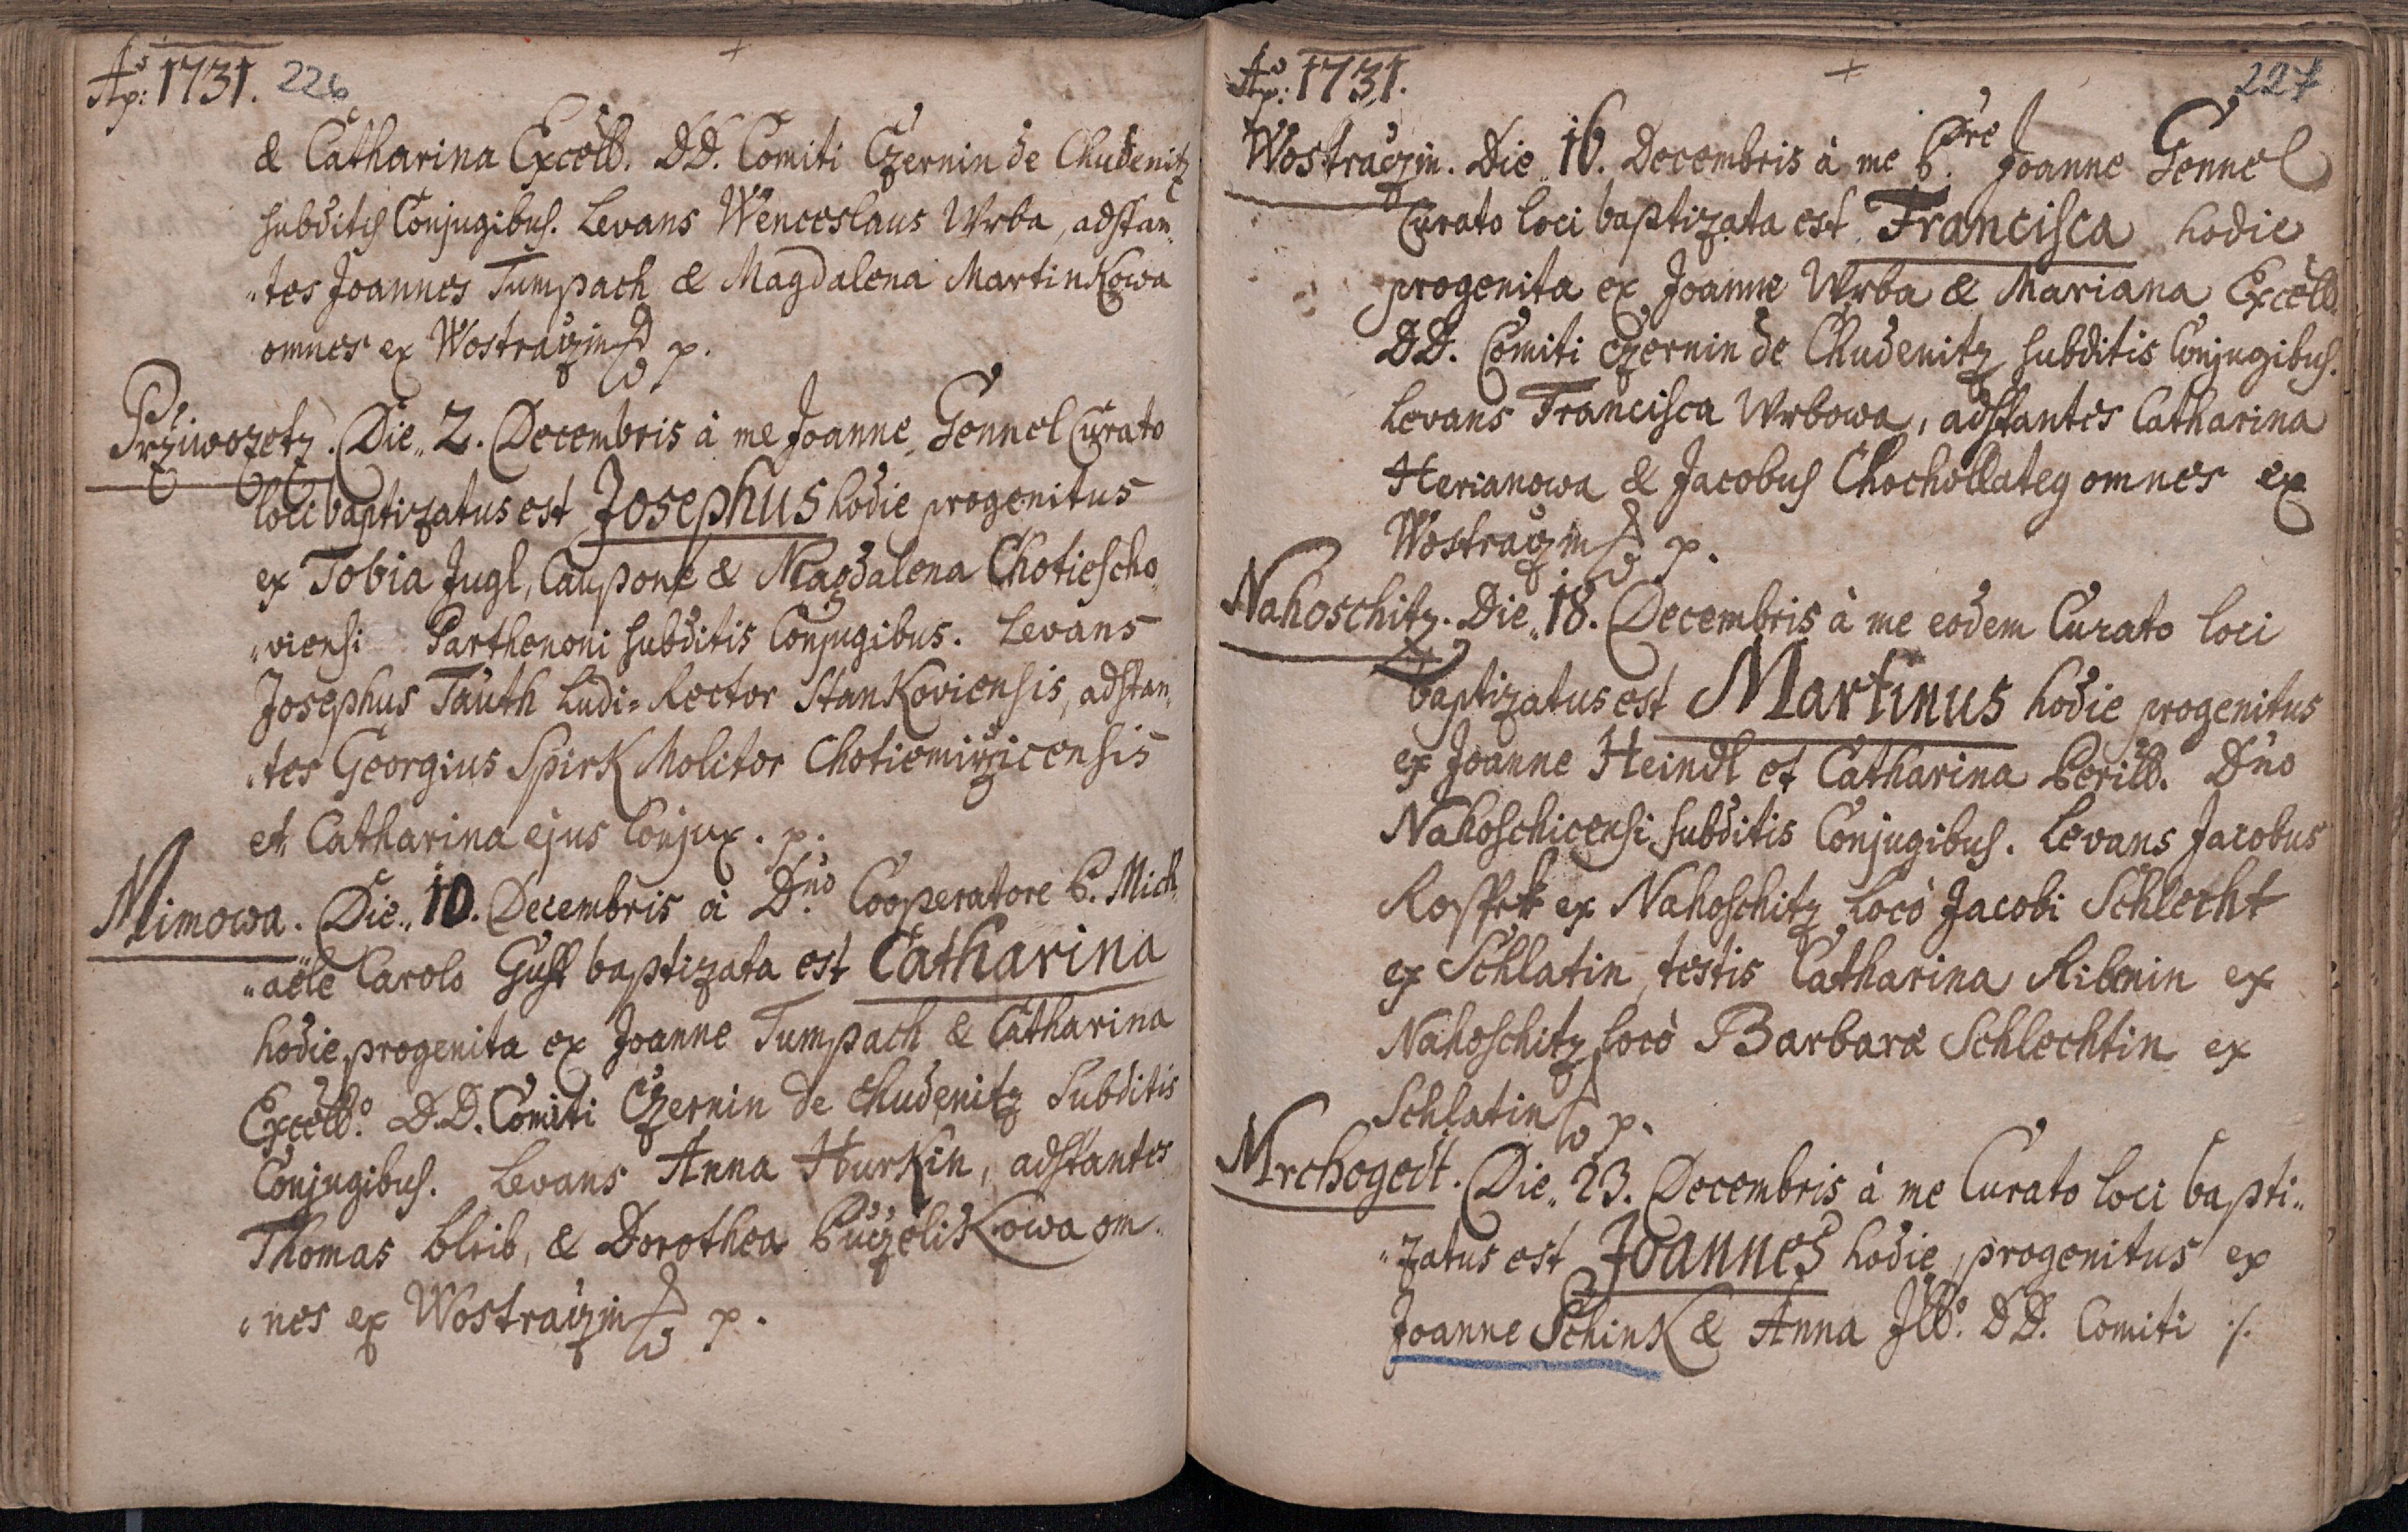 Ao p: 1731. 226
& Catharina Excell. DD. Comiti Czernin de Chudenitz
subditis Conjugibus. Levans Wenceslaus Wrba, adstan„
„tes Joannes Tumpach & Magdalena Martinkowa
omnes ex Wostraczin p.
Przivozetz. Die„ 2. Decembris à me Joanne Gennel Curato
loci baptizatus est Josephus hodie progenitus
ex Tobia Jugl, Caupone & Magdalena Chotiescho„
„viensi Parthenoni subditis Conjugibus. Levans
Josephus Tauth Ludi-Rector Stankoviensis, adstan„
„tes Georgius Spirk Molitor Chotiemiržicensis
et Catharina ejus Conjux. p.
Mimowa. Die„ 10. Decembris à Dno Cooperatore P. Mich„
„aële Carolo baptizata est Catharina
hodie progenita ex Joanne Tumpach & Catharina
Excell:o D.D. Comiti Czernin de Chudenitz Subditis
Conjugibus. Levans Anna Hurkin, adstantes
Thomas blrib, & Dorothea om„
„nes ex Wostraczin p.
Ao p: 1731. 227
Wostraczin. Die„ 16. Decembris à me P.tre Joanne Gennel
Curato loci baptizata est Francisca hodie
progenita ex Joanne Wrba & Mariana Excell.
DD. Comiti Czernin de Chudenitz subditis Conjugibus.
Levans Francisca Wrbowa, adstantes Catharina
Herianowa & Jacobus Chochollateg omnes ex
Wostraczin p.
Nahoschitz. Die„ 18. Decembris à me eodem Curato loci
baptizatus est Martinus hodie progenitus
ex Joanne Heindl et Catharina Perill. Dno
Nahoschicensi subditis Conjugibus. Levans Jacobus
ex Nahoschitz locò Jacobi Schlecht
ex Schlatin, testis Catharina Ribenin ex
Nahoschitz locò Barbara Schlechtin ex
Schlatin p.
Mrchogedt. Die„ 23. Decembris à me Curato loci bapti„
„zatus est Joannes hodie progenitus ex
Joanne Schink & Anna Ill:o DD. Comiti ./.